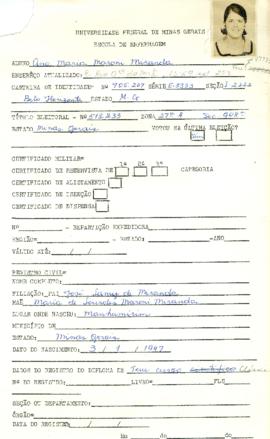 UNIVERSIDADE FEDERAL DE MINAS GERAIS
ESCOLA DE ENFERMAGEM
ALUNO Ana Maria Maroni Miranda
ENDEREÇO ATUALIZADO:
CARTEIRA DE IDENTIDADE- Nº 906.207 SÉRIE SEÇÃO
Belo Horizonte ESTADO M.G
TÍTULO ELEITORAL - Nº 518.833 ZONA 27ª
ESTADO Minas Gerais VOTOU NA ÚLTIMA ELEIÇÃO?
CERTIFICADO MILITAR-
1ª 2ª 3ª
CERTIFICADO DE RESERVISTA DE CATEGORIA
CERTIFICADO DE ALISTAMENTO
CERTIFICADO DE ISENÇÃO
CERTIFICADO DE DISPENSA
Nº - REPARTIÇÃO EXPEDIDORA
REGIÃO= - ESTADO: -ANO
VÁLIDO ATÉ: / /
REGISTRO CIVIL=
NOME COMPLETO:
FILIAÇÃO: PAI José de Miranda
MÃE Maria de Lourdes Maroni Miranda
LOCAL ONDE NASCEU: Manhumirim
MUNICÍPIO DE
ESTADO: Minas Gerais
DATA DO NASCIMENTO: 3 / 1 / 1947
DADOS DO REGISTRO DO DIPLOMA DE Tem curso
Nº DO REGISTRO: LIVRO= FLS
SEÇÃO OU DEPARTAMENTO:
ÓRGÃO=
DATA DO REGISTRO / /